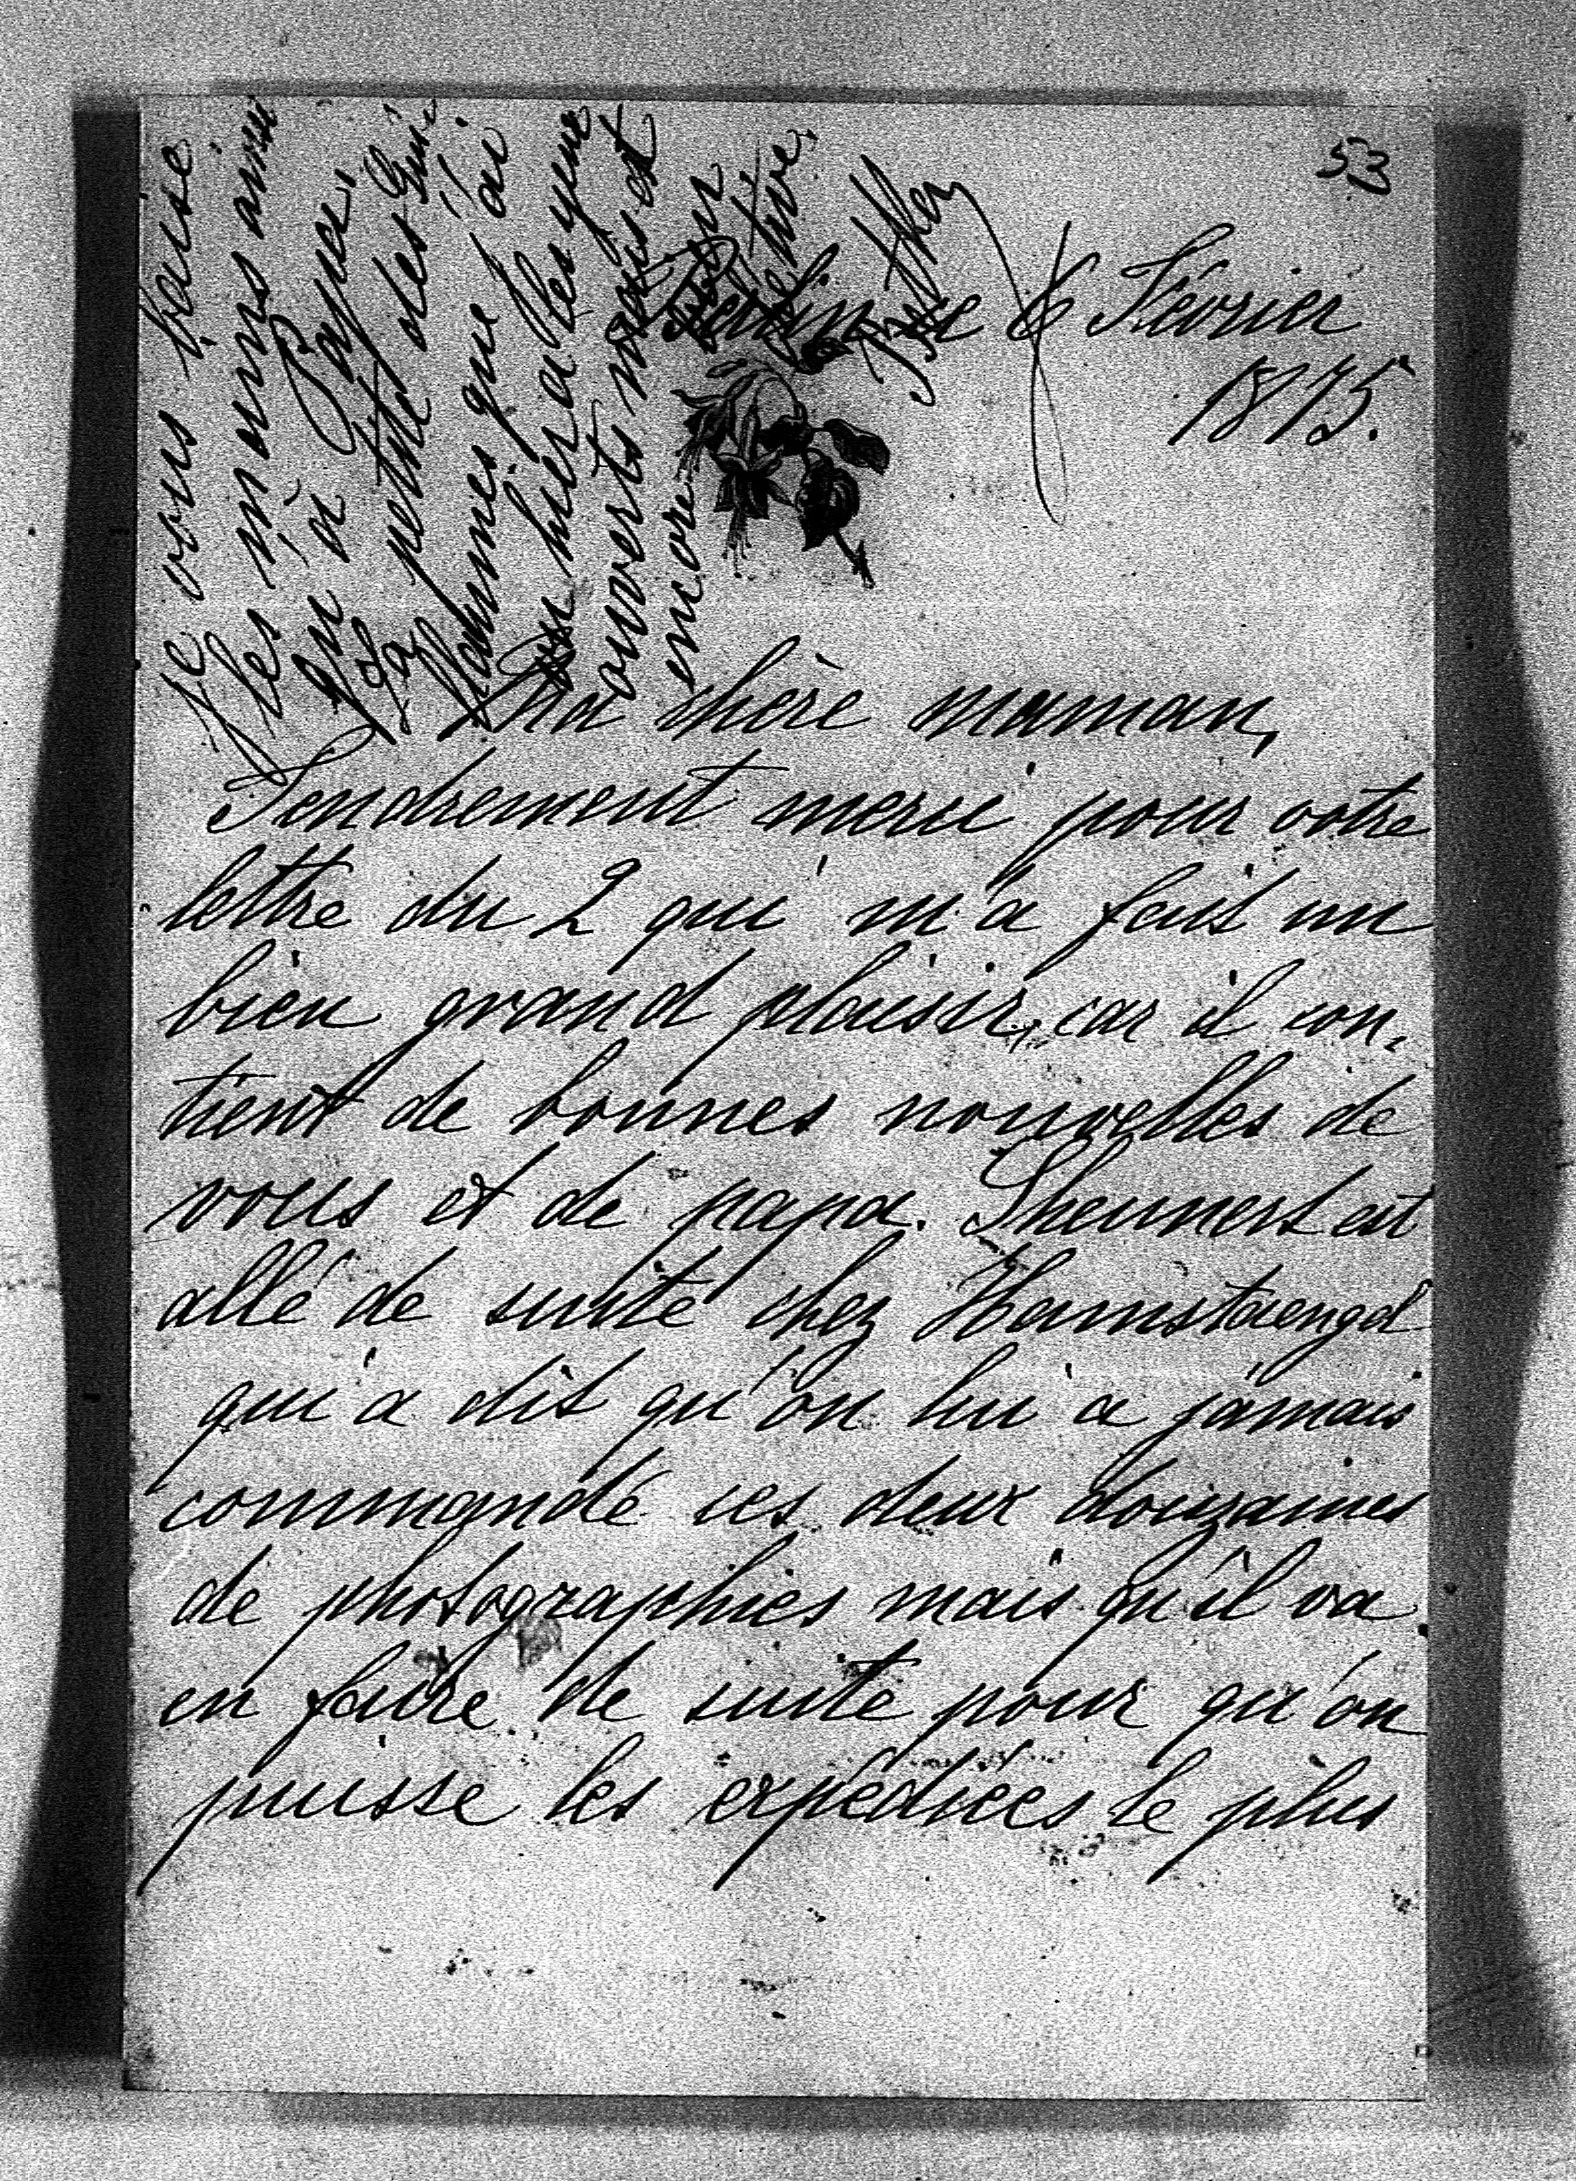 53
Berlin ce 6 Février
1875.
Ma chère maman,
Tendrement merci pour votre
lettre du 2 qui m'a fait un
bien grand plaisir, car il con,
tient de bonnes nouvelles de
vous et de papa. Sheunert est
allé de suite chez Hamstaengel
qui a dit qu'on lui a jamais
commandé ces deux douzaines
de photographies mais qu'il va
en faire de suite pour qu'on
puisse les expédiées le plus
Je vous baise
les mains ainsi
qu'à Papa.
La petite des
que j'ai
vu hier a les yeux
ouverts mais est
encore